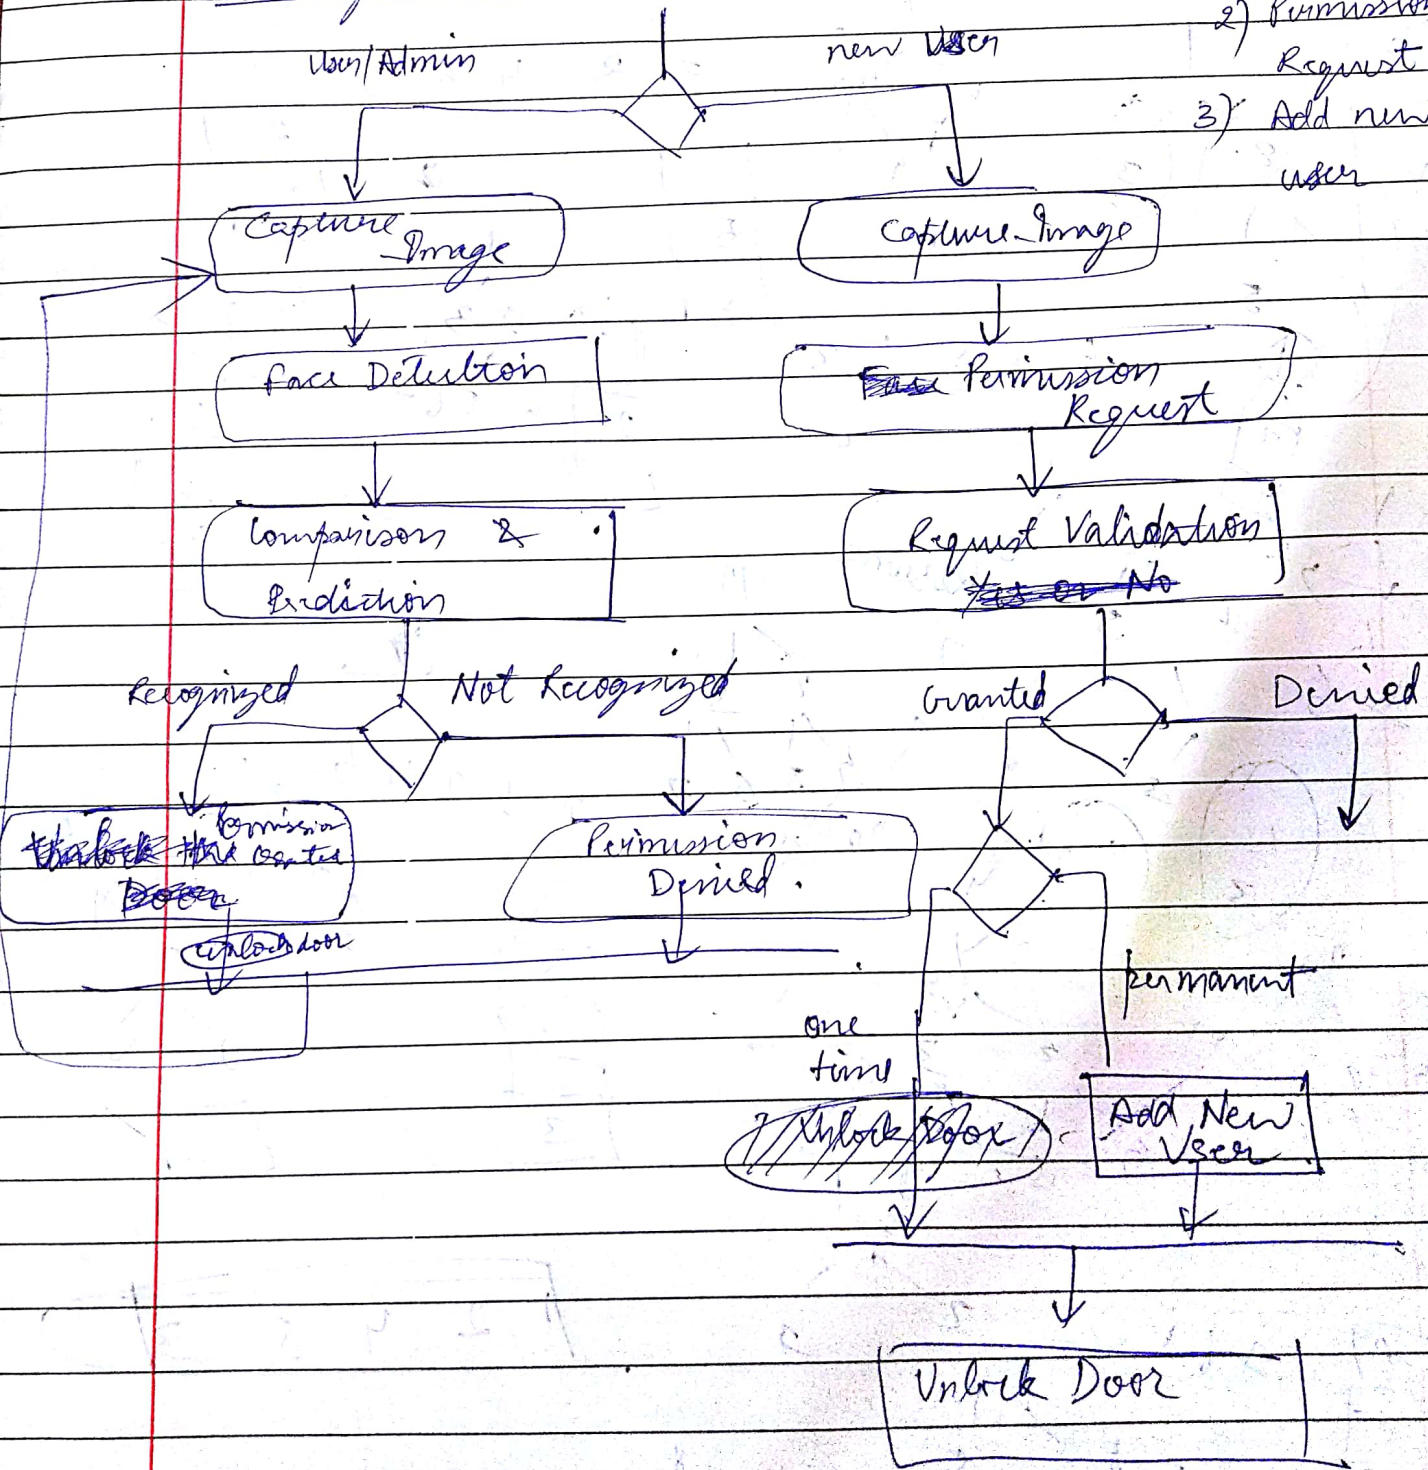 2) Permission
User/Admin
new User
Request
3) Add new
user
Capture
_Image
Capture_Image
Face Detection
Permission
Request
Comparison &
Prediction
Request Validation
Yes or No
Recognized
Not Recognized
Granted
Denied
Permission
Granted
Door
Permission
Denied .
unlock door
permanent
one
time
Unlock Door
Add New
User
Unlock Door